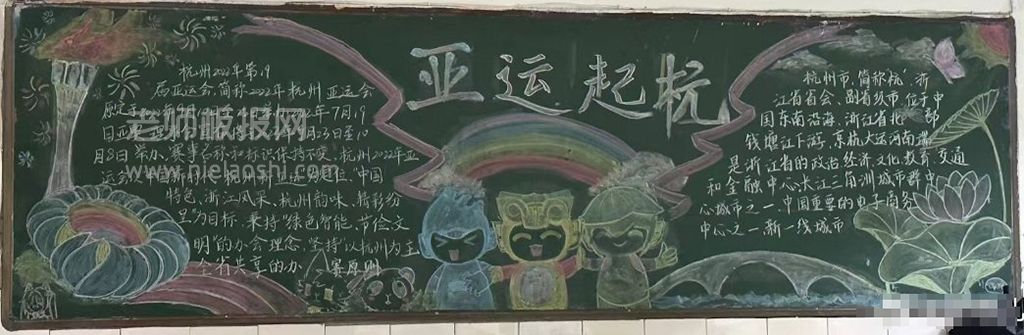 亚运起杭
杭州2022年第19
届亚运会,简称2022年杭州亚运会
原定于
年7月19
日亚
月23日至10
月8日举办,赛事名称和标识保持不变。杭州2022年亚
运会
中国
特色、浙江风采、杭州韵味、精彩纷
呈"为目标,秉持"绿色、智能、节俭、文
明"的办会理念,坚持"以杭州为主
全省共享的办 赛原则
杭州市,简称杭、浙
江省省会、副省级市,位于中
国东南沿海、浙江省北部
钱塘江下游、京杭大运河南端
是浙江省的政治 经济 文化 教育 交通
和金融中心,长江三角洲城市群中
心城市之一、中国重要的电子商务
中心之一 新一线城市
老师板报网
www.nielaoshi.com